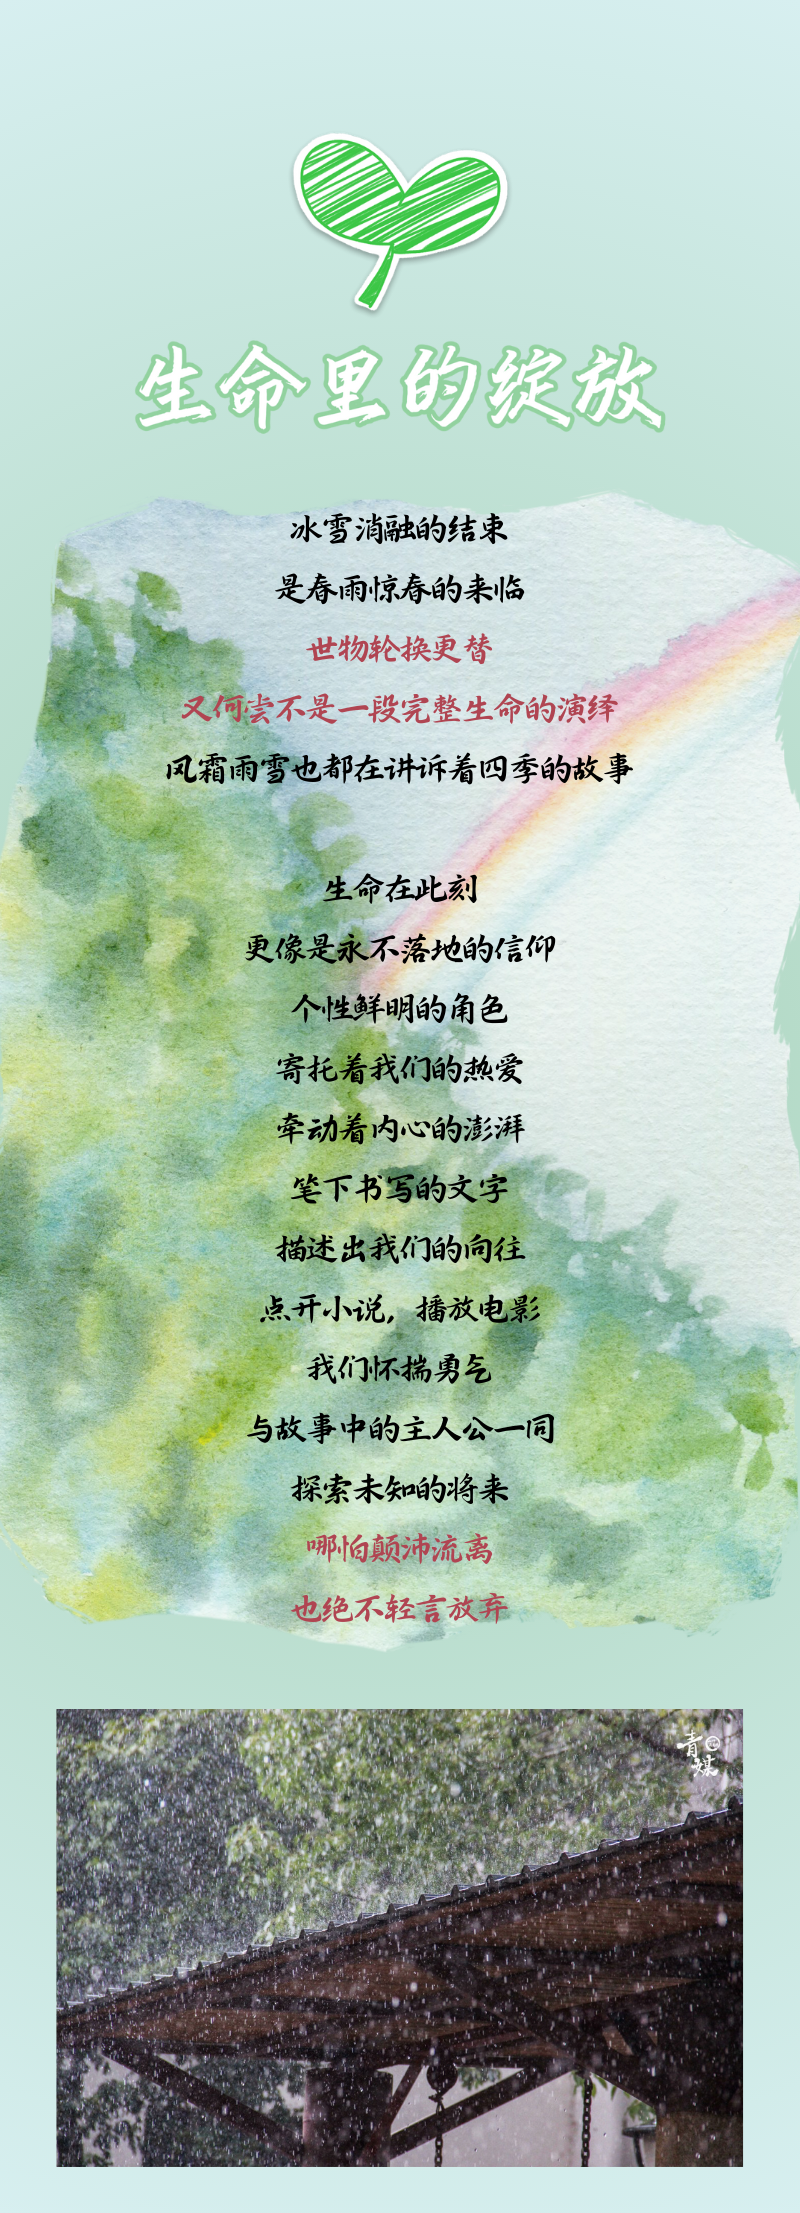 生命里的绽放
冰雪消融的结束
是春雨惊春的来临
世物轮换更替
又何尝不是一段完整生命的演绎
风霜雨雪也都在讲诉着四季的故事
生命在此刻
更像是永不落地的信仰
个性鲜明的角色
寄托着我们的热爱
牵动着内心的澎湃
笔下书写的文字
描述出我们的向往
点开小说，播放电影
我们怀揣勇气
与故事中的主人公一同
探索未知的将来
哪怕颠沛流离
也绝不轻言放弃
青媒